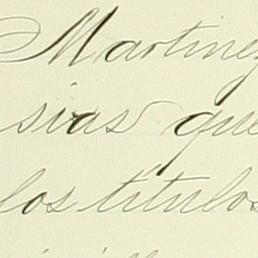 Martinez
sias que
los títulos